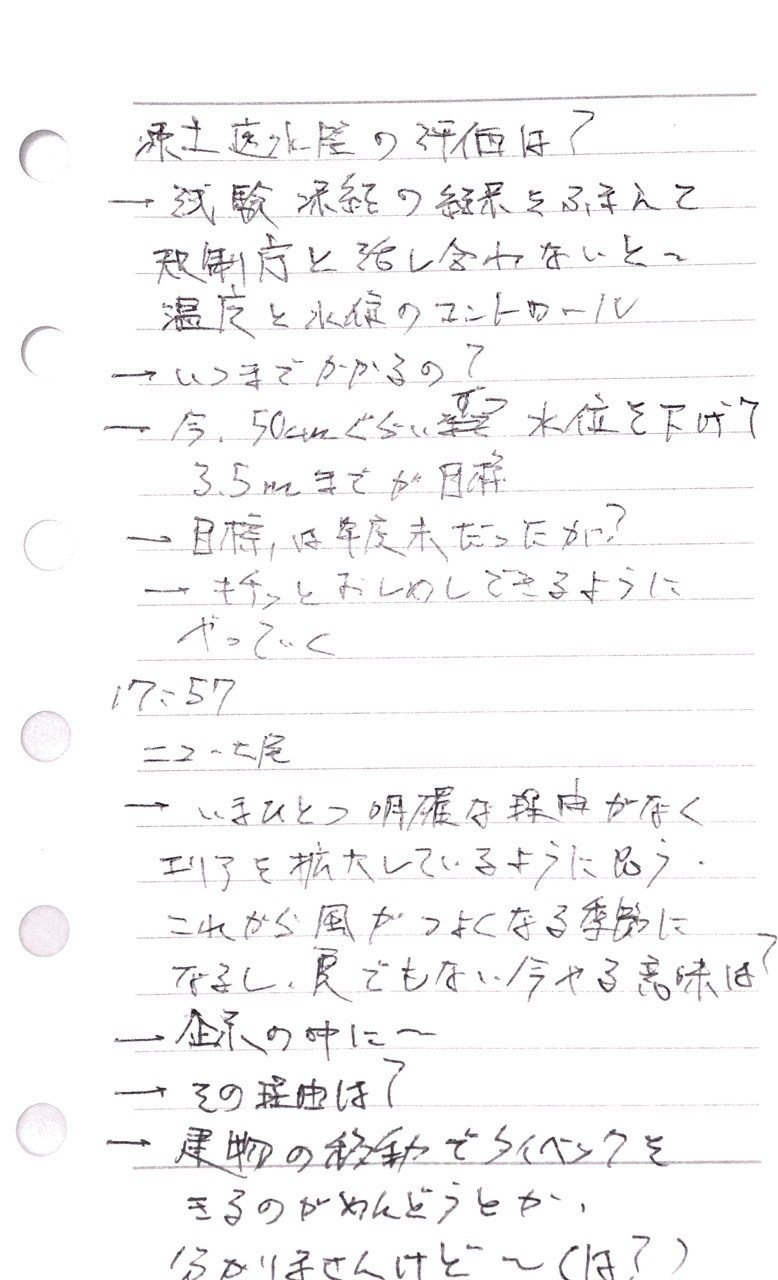 凍土遮水壁の評価は?
→ 試験凍結の結果をふまえて
規制庁と話し合わないと〜
温度と水位のコントロール
→ いつまでかかるの?
→ 今、50cmぐらいずつ 水位を下げて
3.5mまでが目標
→ 目標は年度末だったが?
→ キチッとおしめしできるように
やっていく
17:57
ニコ・七尾
→ いまひとつ明確な理由がなく
エリアを拡大しているように思う.
これから風がつよくなる季節に
なるし、夏でもない今やる意味は?
→ 企業の中に〜
→ その理由は?
→ 建物の移動でタイベックを
きるのがめんどうとか、
分かりませんけど〜(ほ?)